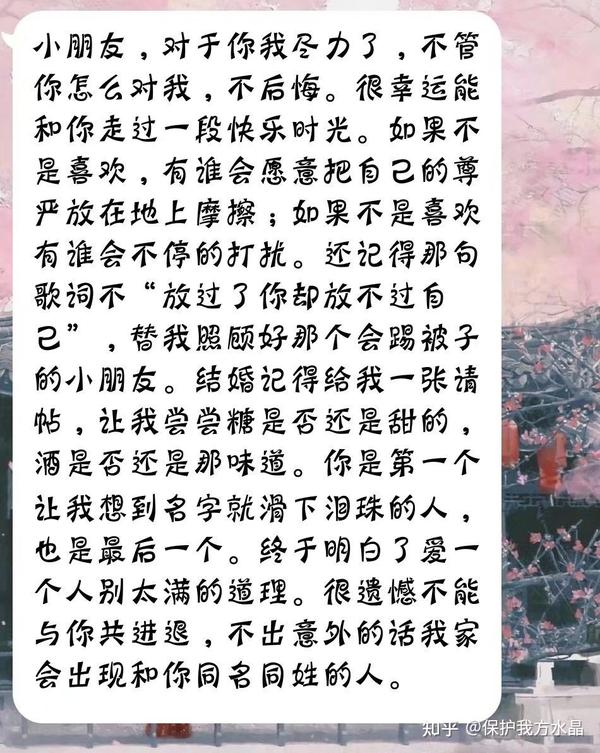 小朋友，对于你我尽力了，不管
你怎么对我，不后悔。很幸运能
和你走过一段快乐时光。如果不
是喜欢，有谁会愿意把自己的尊
严放在地上摩擦；如果不是喜欢
有谁会不停的打扰。还记得那句
歌词不“放过了你却放不过自
己”，替我照顾好那个会踢被子
的小朋友。结婚记得给我一张请
帖，让我尝尝糖是否还是甜的，
酒是否还是那味道。你是第一个
让我想到名字就滑下泪珠的人，
也是最后一个。终于明白了爱一
个人别太满的道理。很遗憾不能
与你共进退，不出意外的话我家
会出现和你同名同姓的人。
知乎 @保护我方水晶